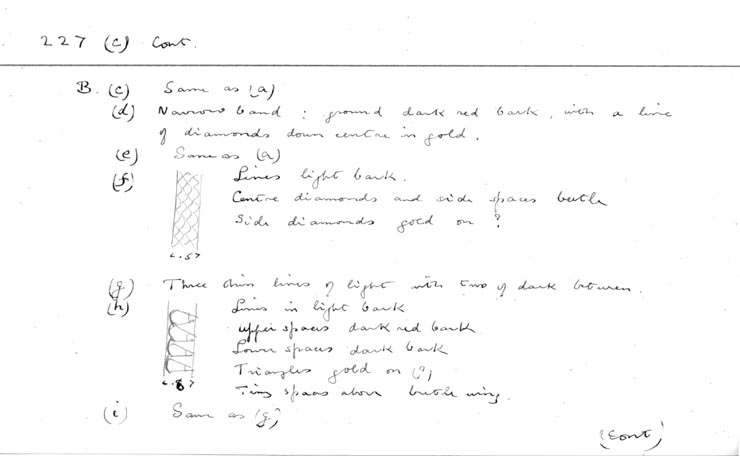 227 (c) Cont.
B. (c) Same as (a)
(d) Narrow band : ground dark red bark, with a line
of diamonds down centre in gold.
(e) Same as (a)
(f) Lines light bark.
Centre diamonds and side spaces beetle
Side diamonds gold on ?
<.5>
(g) Three thin lines of light with two of dark between.
(h) Lines in light bark
upper spaces dark red bark
Lower spaces dark bark
Triangles gold on (?)
<.8>
Tiny spaces above beetle wing.
(i) Same as (g)
(Cont)